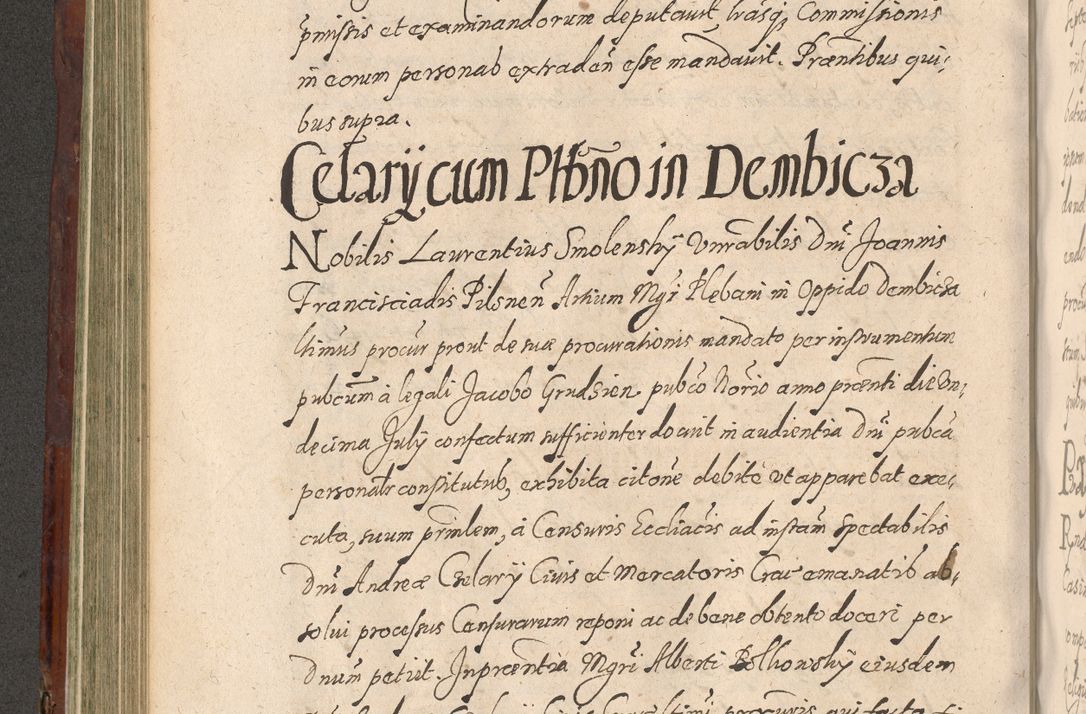 pmissis et examinandorum deputavit, lrasq̃ Commissionis
in eorum personab extradeñ esse mandavit. Præntibus qui,
bus supra.
Celarij cum Plbño in Dembicza
Nobilis Laurentius Smolenskÿ Vnrabilis Dnĩ Joannis
Francisciadis Pilsneñ Artium Mgrĩ Plebani in Oppido Dembicza
ltimus procur̃ prout de suæ procurationis mandato per instrumentum
pubcum à legali Jacobo Grudsien pubco Norio anno præsenti die Vn,
decima Julÿ confectum sufficienter docuit in audientia Dnĩ pubca
personalr constitutus, exhibita citoñe debitè vt apparebat exe,
cuta, suum prinlem, à Censuris Eccliacis ad instam̃ Spectabilis
Dnĩ Andreæ Celarÿ Ciuis et Mercatoris Crac emanatis ab,
solui processus Censurarum reponi ac de bene obtento doceri per
Dnum petiit. In præntia Mgrĩ Alberti eiusdem
Celarij Ciuis Crac ltimi procuris qui facta